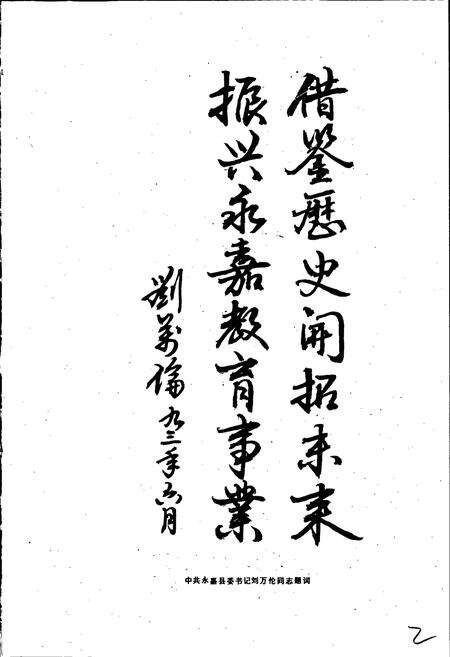 借鉴歷史開拓未来
振兴永嘉教育事業
劉萬倫 九三年六月
中共永嘉县委书记刘万伦同志题词
2